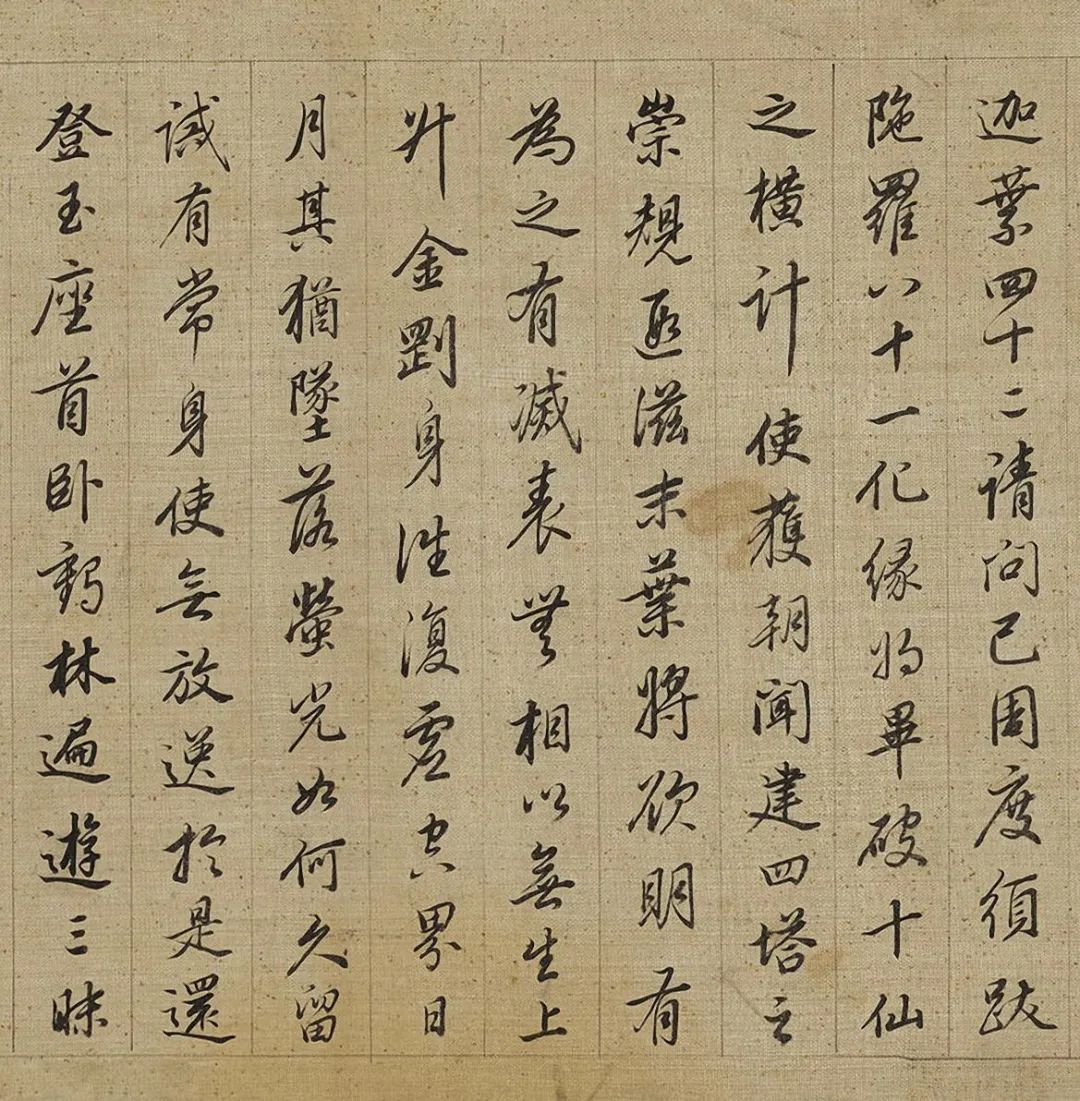 迦葉四十二請問已周度須跋
陁羅八十一化緣將畢破十仙
之橫計使獲朝聞建四塔之
崇規匪滋末葉將欲明有
為之有滅表無相以無生上
升金剛身往復虛空界日
月其猶墜落螢光如何久留
誡有常身使無放逸於是還
登玉座首臥鶴林遍遊三昧